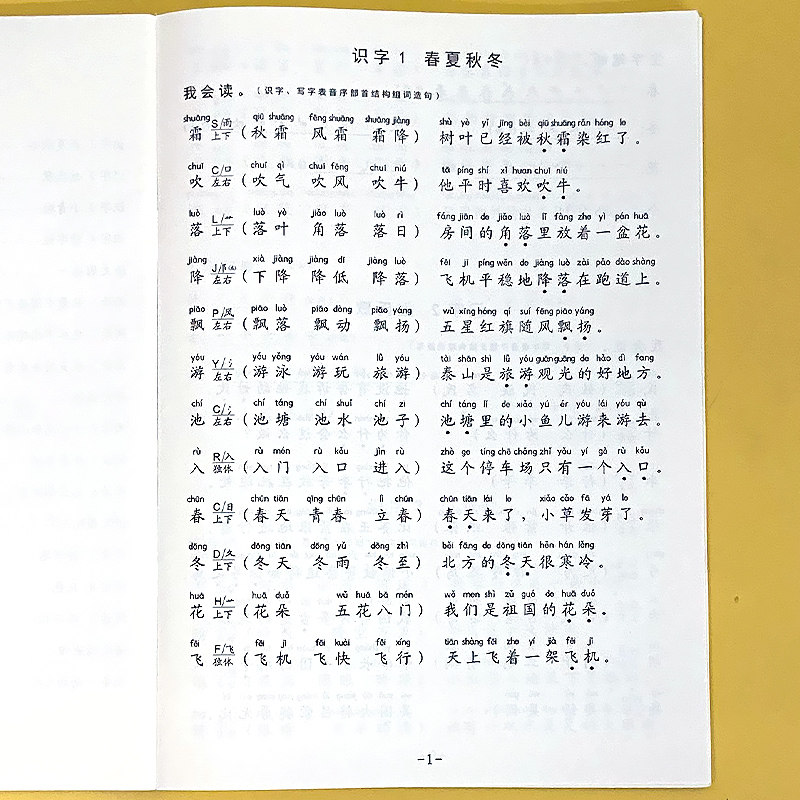 识字1 春夏秋冬
我会读。(识字、写字表音序部首结构组词造句)
shuāng qiū shuāng fēng shuāng shuāng jiàng shù yè yǐ jīng bèi qiū shuāng rǎn hóng le
霜 S/雨 上下 (秋霜 风霜 霜降) 树叶已经被秋霜染红了。
chuī chuī qì chuī fēng chuī niú tā píng shí xǐ huan chuī niú
吹 C/口 左右 (吹气 吹风 吹牛) 他平时喜欢吹牛。
luò luò yè jiǎo luò luò rì fáng jiān de jiǎo luò lǐ fàng zhe yì pén huā
落 L/艹 上下 (落叶 角落 落日) 房间的角落里放着一盆花。
jiàng xià jiàng jiàng dī jiàng luò fēi jī píng wěn de jiàng luò zài pǎo dào shàng
降 J/阝 左右 (下降 降低 降落) 飞机平稳地降落在跑道上。
piāo piāo luò piāo dòng piāo yáng wǔ xīng hóng qí suí fēng piāo yáng
飘 P/风 左右 (飘落 飘动 飘扬) 五星红旗随风飘扬。
yóu yóu yǒng yóu wán lǚ yóu tài shān shì lǚ yóu guān guāng de hǎo dì fang
游 Y/氵 左右 (游泳 游玩 旅游) 泰山是旅游观光的好地方。
chí chí táng chí shuǐ chí zi chí táng lǐ de xiǎo yú ér yóu lái yóu qù
池 C/氵 左右 (池塘 池水 池子) 池塘里的小鱼儿游来游去。
rù rù mén rù kǒu jìn rù zhè ge tíng chē chǎng zhǐ yǒu yí gè rù kǒu
入 R/入 独体 (入门 入口 进入) 这个停车场只有一个入口。
chūn chūn tiān qīng chūn lì chūn chūn tiān lái le xiǎo cǎo fā yá le
春 C/日 上下 (春天 青春 立春) 春天来了,小草发芽了。
dōng dōng tiān dōng yǔ dōng zhì běi fāng de dōng tiān hěn hán lěng
冬 D/夂 上下 (冬天 冬雨 冬至) 北方的冬天很寒冷。
huā huā duǒ wǔ huā bā mén wǒ men shì zǔ guó de huā duǒ
花 H/艹 上下 (花朵 五花八门) 我们是祖国的花朵。
fēi fēi jī fēi kuài fēi xíng tiān shàng fēi zhe yí jià fēi jī
飞 F/飞 独体 (飞机 飞快 飞行) 天上飞着一架飞机。
-1-